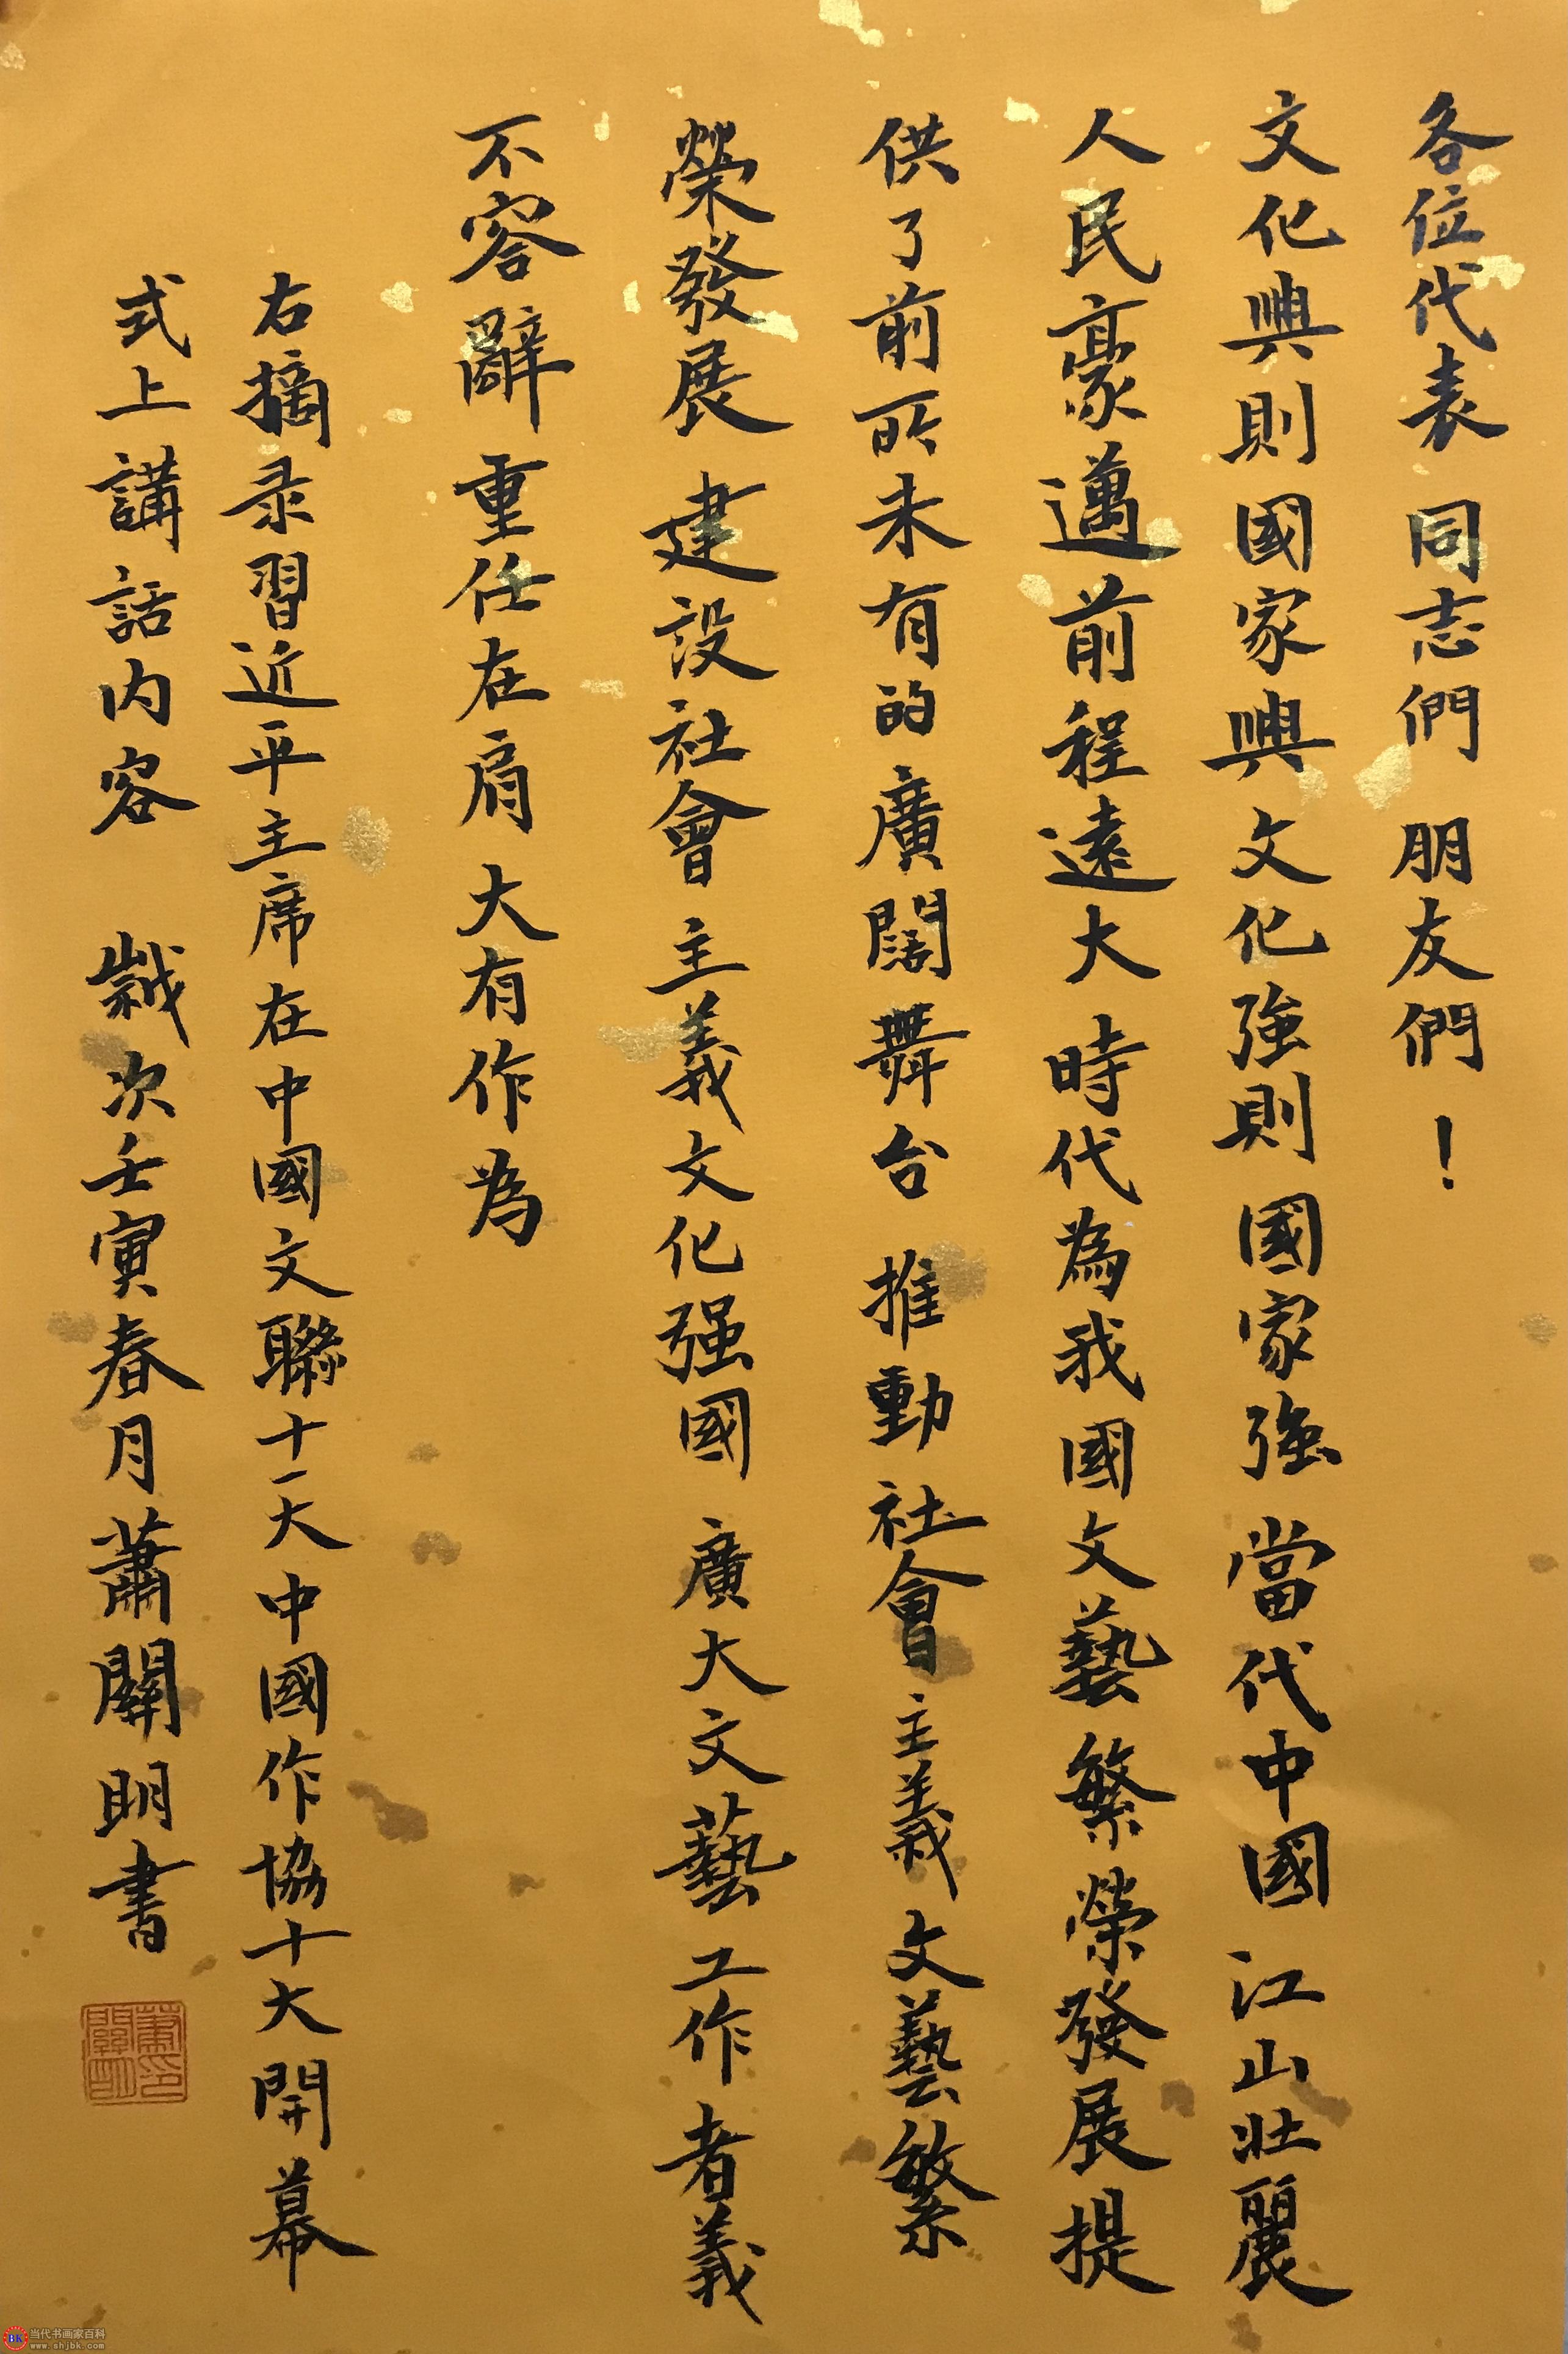 各位代表 同志們 朋友們！
文化興則國家興 文化強則國家強 當代中國 江山壯麗
人民豪邁 前程遠大 時代為我國文藝繁榮發展提
供了前所未有的廣闊舞台 推動社會主義文藝繁
榮發展 建設社會主義文化强國 廣大文藝工作者義
不容辭 重任在肩 大有作為
右摘录習近平主席在中國文聯十一大 中國作協十大開幕
式上講話内容 歲次壬寅春月蕭關明書
蕭關明印
当代书画家百科
www.shjbk.com